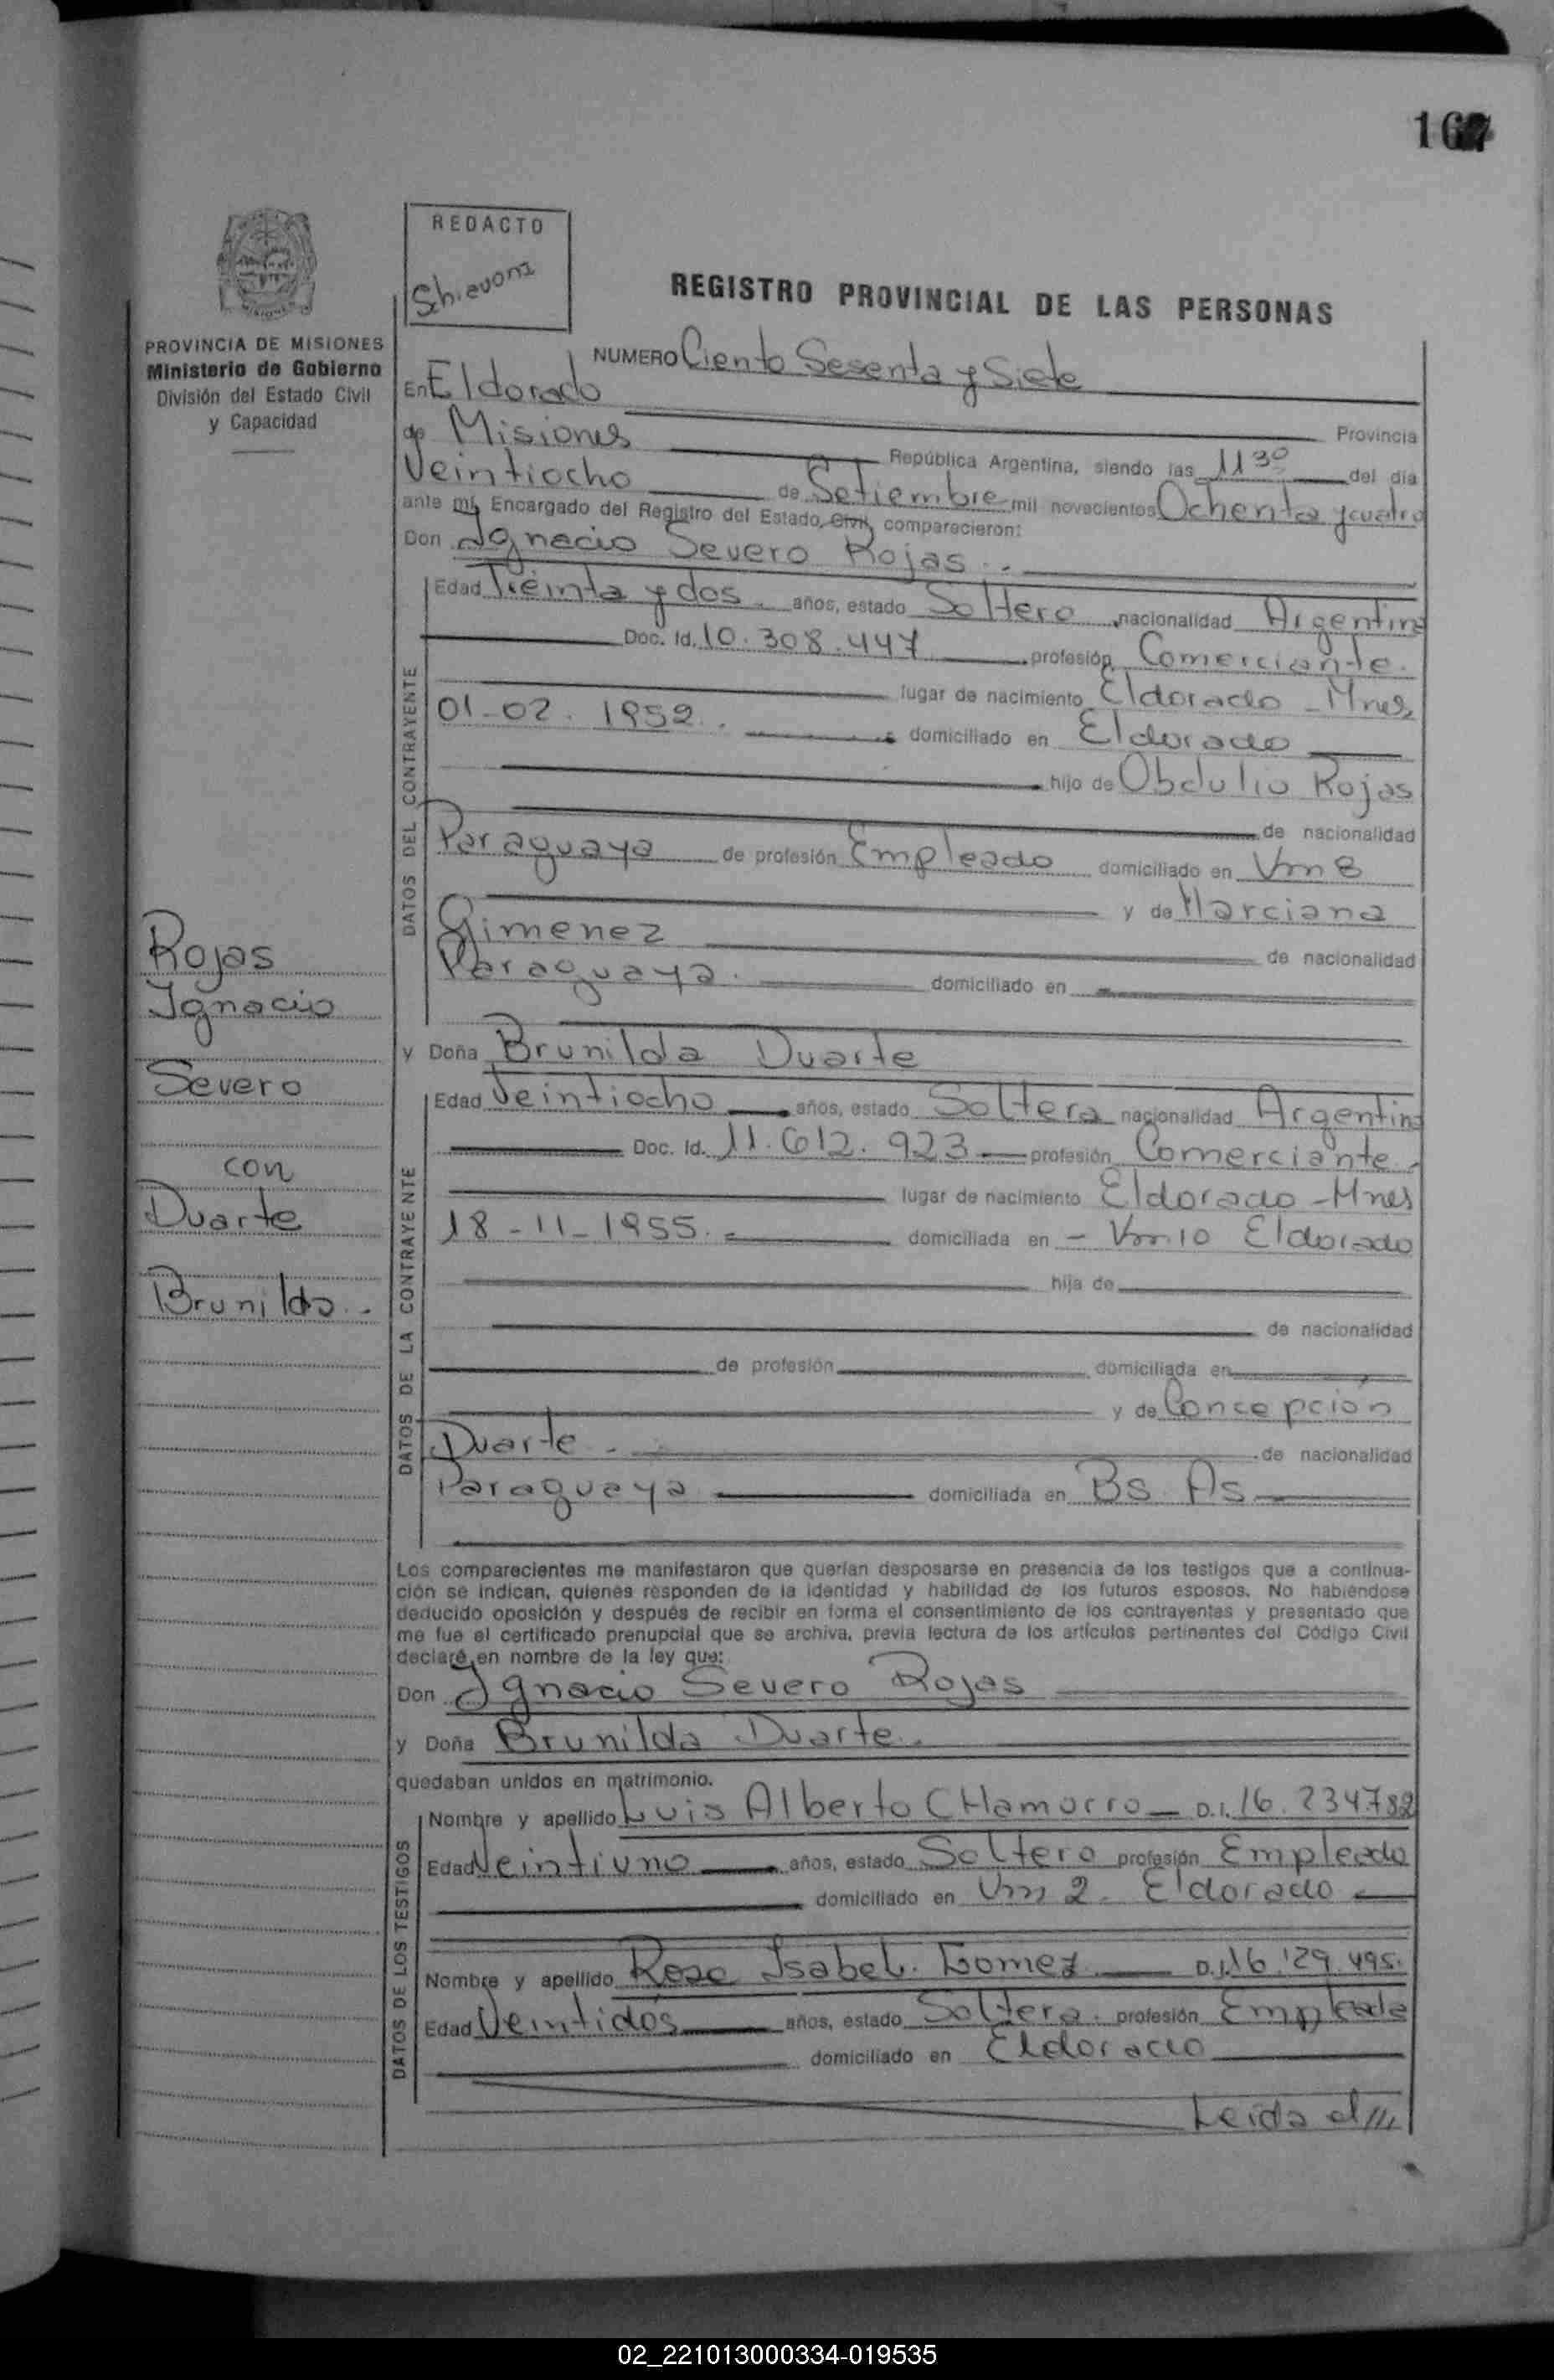 167
REDACTO
REGISTRO PROVINCIAL DE LAS PERSONAS
PROVINCIA DE MISIONES
Ministerio de Gobierno
División del Estado Civil
y Capacidad
NUMERO Ciento Sesenta y Siete
En Eldorado
de Misiones Provincia
República Argentina, siendo las 11 30 del día
Veintiocho de Setiembre mil novecientos Ochenta y cuatro
ante mí, Encargado del Registro del Estado Civil, comparecieron:
Don Ignacio Severo Rojas
DATOS DEL CONTRAYENTE
Edad Treinta y dos años, estado Soltero nacionalidad Argentina
Doc. Id. 10.308.447 profesión Comerciante.
lugar de nacimiento Eldorado - Mnes
01-02-1952. domiciliado en Eldorado
hijo de Obdulio Rojas
de nacionalidad
Paraguaya de profesión Empleado domiciliado en Km 8
y de Marciana
Gimenez de nacionalidad
Paraguaya. domiciliado en
Rojas
Ignacio
Severo
con
Duarte
Brunilda.
y Doña Brunilda Duarte
DATOS DE LA CONTRAYENTE
Edad Veintiocho años, estado Soltera nacionalidad Argentina
Doc. Id. 11.612.923 profesión Comerciante.
lugar de nacimiento Eldorado - Mnes
18-11-1955. domiciliada en - Km 10 Eldorado
hija de
de nacionalidad
de profesión domiciliada en
y de Concepción
Duarte. de nacionalidad
Paraguaya domiciliada en Bs. As
Los comparecientes me manifestaron que querían desposarse en presencia de los testigos que a continua-
ción se indican, quienes responden de la identidad y habilidad de los futuros esposos. No habiéndose
deducido oposición y después de recibir en forma el consentimiento de los contrayentes y presentado que
me fue el certificado prenupcial que se archiva, previa lectura de los artículos pertinentes del Código Civil
declaré en nombre de la ley que:
Don Ignacio Severo Rojas
y Doña Brunilda Duarte.
quedaban unidos en matrimonio.
DATOS DE LOS TESTIGOS
Nombre y apellido Luis Alberto CHamorro D.I. 16.234.782
Edad Veintiuno años, estado Soltero profesión Empleado
domiciliado en Km 2. Eldorado
Nombre y apellido Rosa Isabel Gomez D.I. 16.129.495.
Edad Veintidós años, estado Soltera. profesión Empleada
domiciliado en Eldorado
Leida el///
02_221013000334-019535